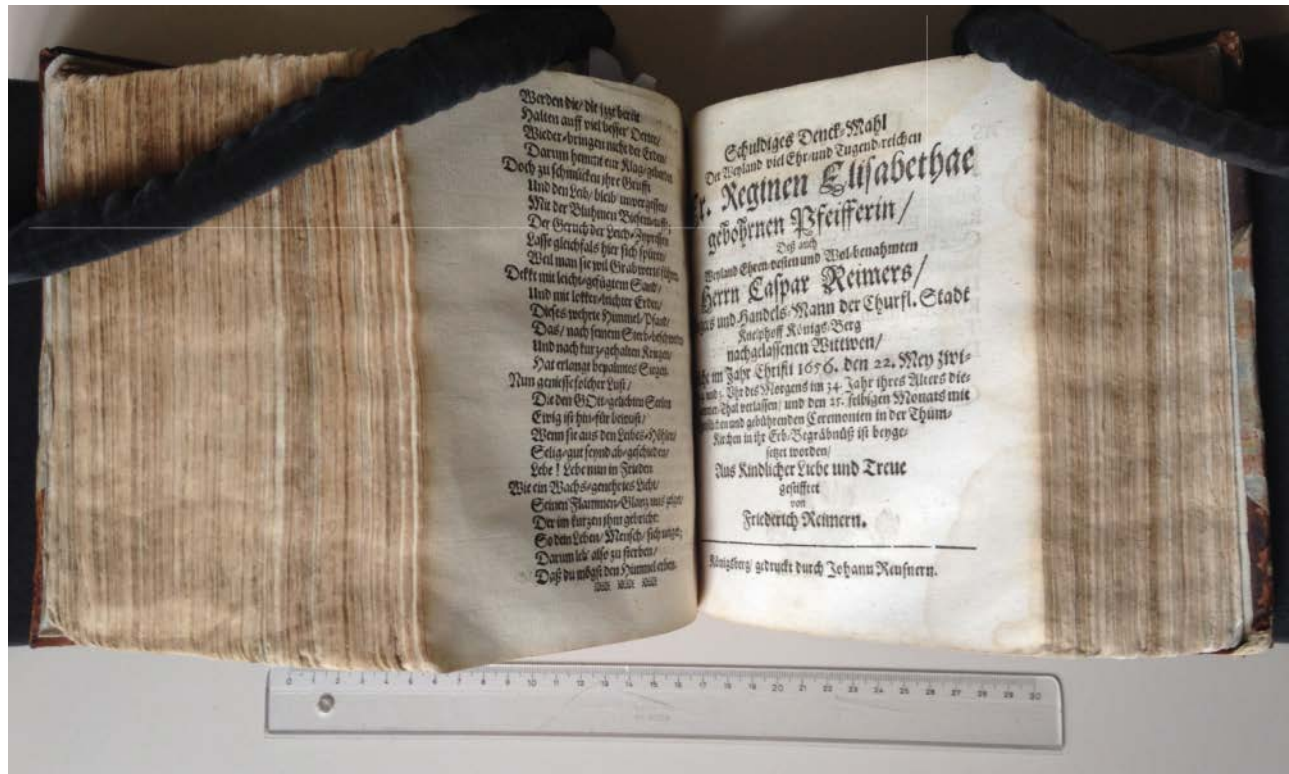 Werden die/ die jzt bereit
Halten auff viel besser Dente/
Wieder-bringen nicht der Erden/
Darum hemmt eur Klag-geberden
Doch zu schmücken ihre Grufft
Und den Leib/ bleib' unvergessen/
Mit der Bluhmen
Der Geruch der Leich-Zypressen
Lasse gleichfals hier sich spüren/
Weil man sie wil Grabwerts führen.
Dekkt mit leicht-gefügtem Sand/
Und mit lokker-leichter Erden/
Dieses wehrte Himmel-Pfand/
Das/ nach seinem Sterb-beschwerden
Und nach kurz-gehalten Kriegen/
Hat erlangt bepalmtes Siegen.
Nun geniesse solcher Lust/
Die den GOtt-geliebten Seelen
Ewig ist hin-für bewust/
Wenn sie aus den Leibes-Höhlen/
Selig-gut seynd ab-geschieden/
Lebe! Lebe nun in Frieden
Wie ein Wachs-genehrtes Licht/
Seinen Flammen-Glanz
Der im kurzen ihm gebricht:
So dein Leben/ Mensch/ sich
Darum leb' also zu sterben/
Daß du mögst den Himmel erben.
Schuldiges Denck-Mahl
Der Weyland viel Ehr-und Tugend-reichen
Fr. Reginen Elisabethae
gebohrnen Pfeifferin/
Deß auch
Weyland Ehren-vesten und Wol-benahmten
Herrn Caspar Reimers/
und Handels-Mann der Churfl. Stadt
Kneiphoff Königs-Berg
nachgelassenen Wittwen/
im Jahr Christi 1656. den 22. Mey zwi-
und 3. Uhr des Morgens im 34. Jahr ihres Alters die-
Thal verlassen/ und den 25. selbigen Monats mit
und gebührenden Ceremonien in der Thüm-
Kirchen in ihr Erb-Begräbnüß ist beyge-
setzet worden/
Aus Kindlicher Liebe und Treue
gestifftet
von
Friederich Reimern.
Königsberg/ gedruckt durch Johann Reusnern.
0 1 2 3 4 5 6 7 8 9 10 11 12 13 14 15 16 17 18 19 20 21 22 23 24 25 26 27 28 29 30